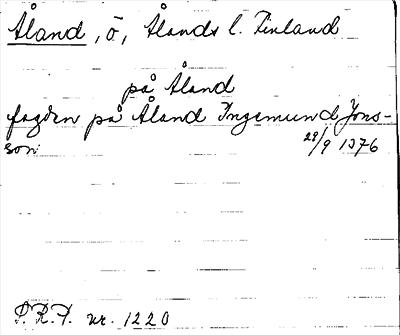 Åland, ö, Ålands l. Finland
på Åland
fogden på Åland Ingemund Jons-
son 29/9 1376
S.R.P. nr. 1220